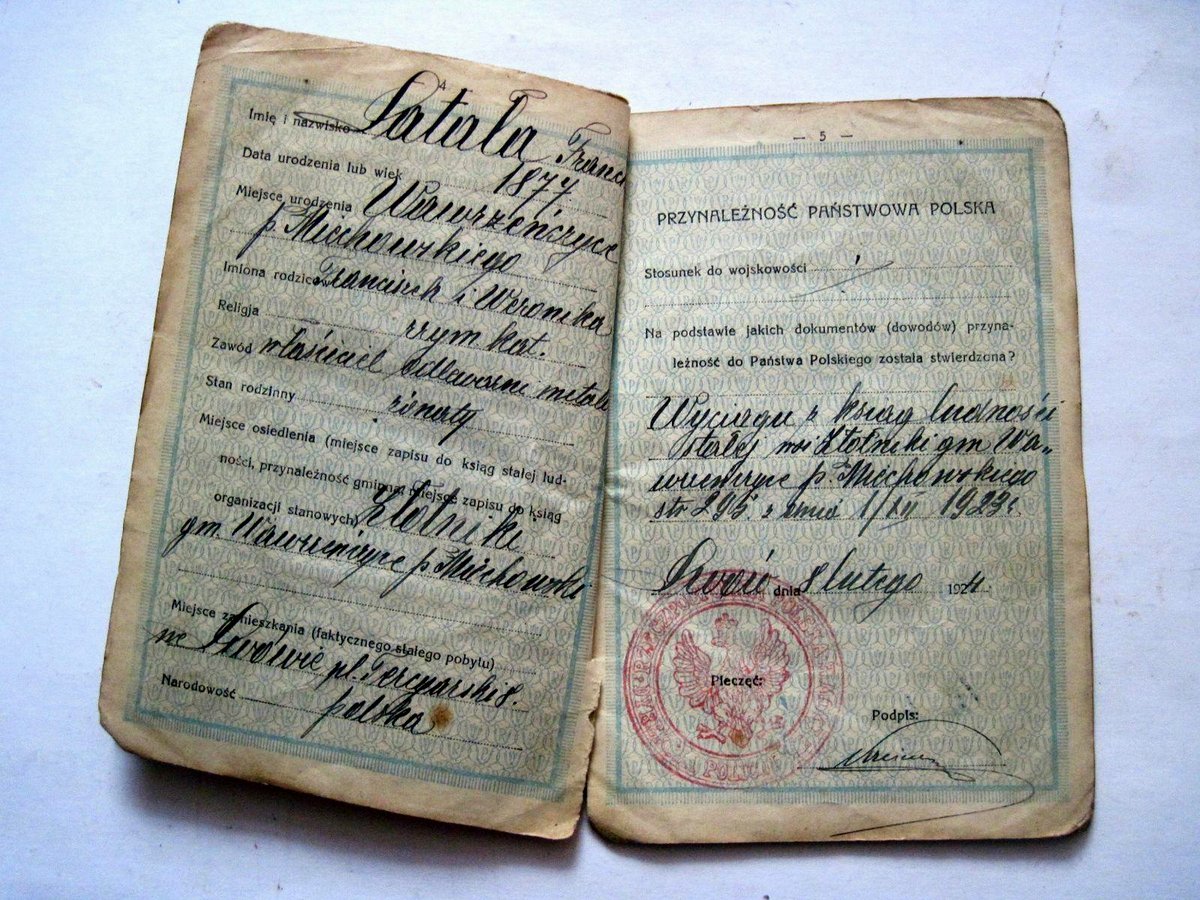 4
Imię i nazwisko Satała Franci
Data urodzenia lub wiek 1877
Miejsce urodzenia Wawrzeńczyce
p. Miechowskiego
Imiona rodziców Franciszek i Weronika
Religja rzym. kat.
Zawód właściciel Odlewarni metali
Stan rodzinny żonaty
Miejsce osiedlenia (miejsce zapisu do ksiąg stałej lud-
ności, przynależność gminna, miejsce zapisu do ksiąg
organizacji stanowych) Złotniki
gm. Wawrzeńczyce p. Miechowski
Miejsce zamieszkania (faktycznego stałego pobytu)
we Lwowie pl.
Narodowość polska
— 5 —
PRZYNALEŻNOŚĆ PAŃSTWOWA POLSKA
Stosunek do wojskowości
Na podstawie jakich dokumentów (dowodów) przyna-
leżność do Państwa Polskiego została stwierdzona?
Wyciągu z ksiąg ludności
stałej wsi Złotniki gm. Wa-
wrzeńczyce p. Miechowskiego
str. z dnia 1/XII 1923 r.
Lwów dnia 8 lutego 1924
Pieczęć:
Podpis: